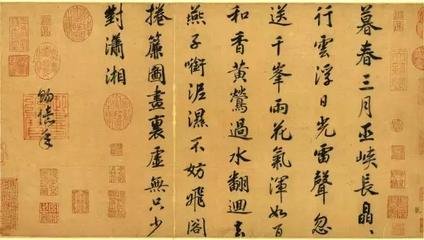 暮春三月巫峽長晶〻
行雲浮日光雷聲忽
送千峯雨花氣渾如百
和香黃鶯過水翻迴去
燕子銜泥濕不妨飛閣
捲簾圖畫裏虛無只少
對瀟湘
賜億年